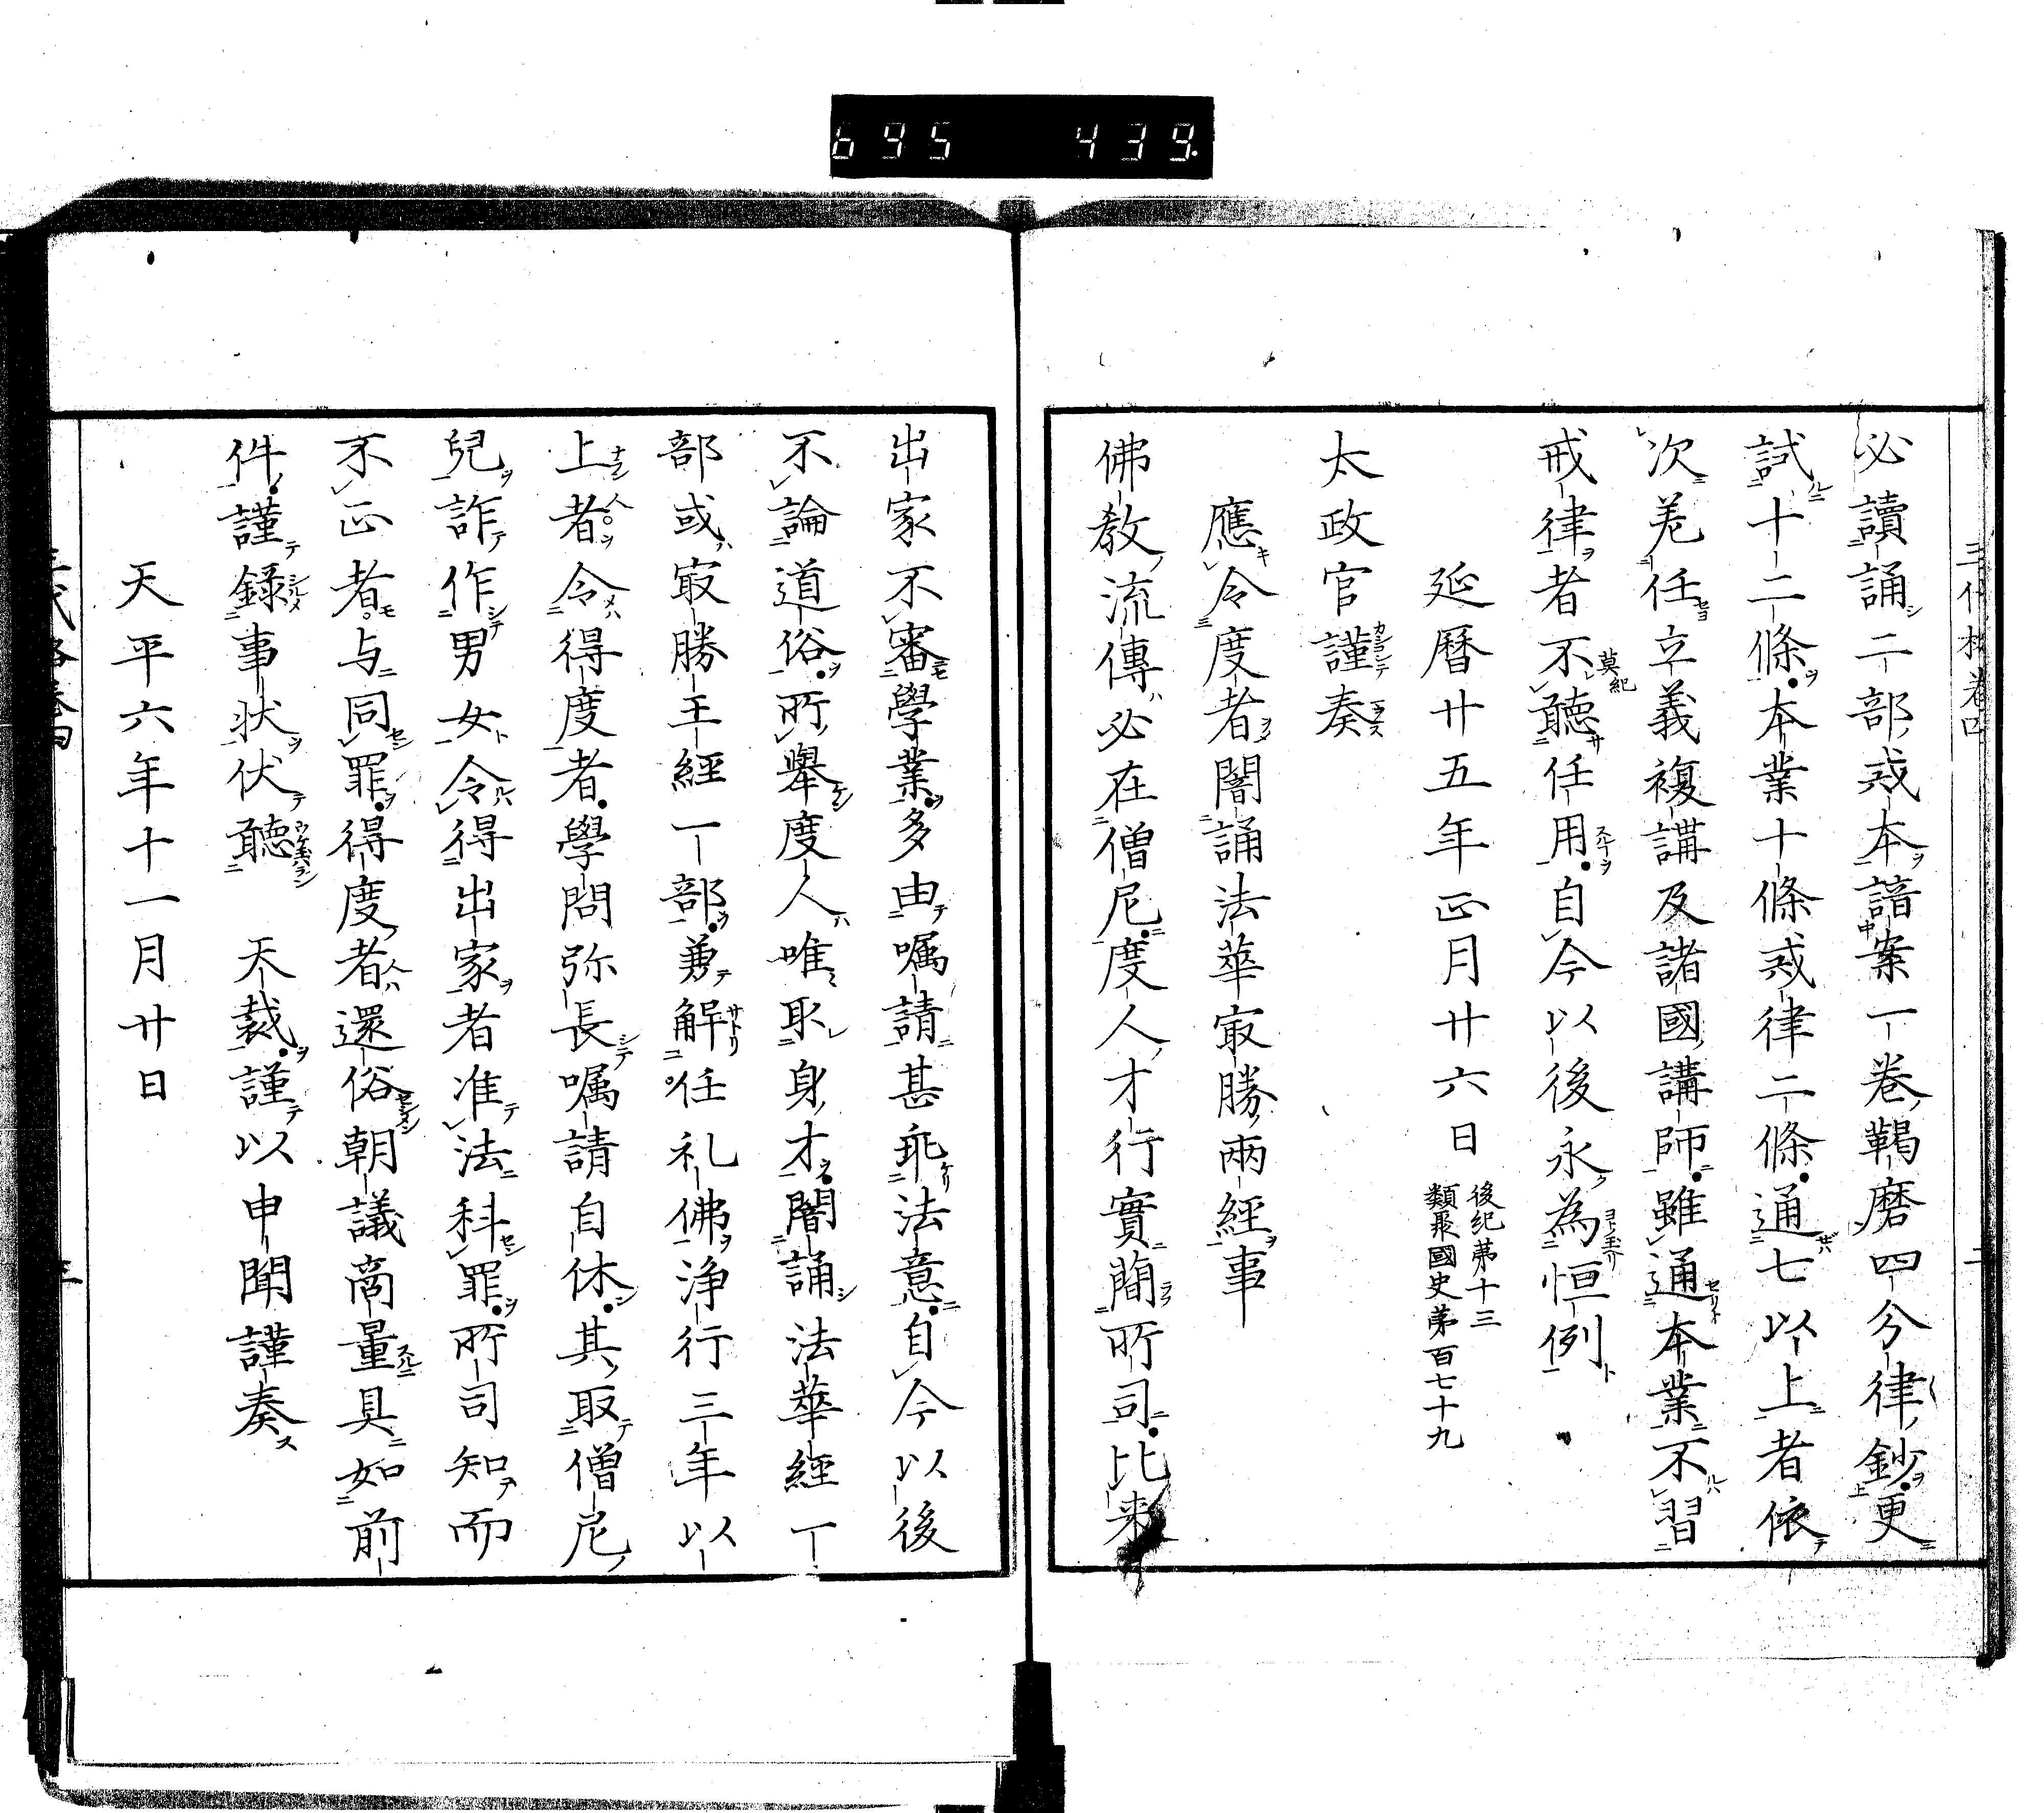 695 439
三代格卷四 二
必讀誦二部戒本諳案一卷羯磨四分律鈔更
試十二條本業十條戒律二條通七以上者依
次差任立義複講及諸國講師雖通本業不習
戒律者不聽任用自今以後永為恒例
莫紀
延曆廿五年正月廿六日
後紀第十三
類聚國史第百七十九
太政官謹奏
應令度者闇誦法華㝡勝兩經事
佛教流傳必在僧尼度人才行實蕳所司比来
出家不審學業多由嘱請甚乖法意自今以後
不論道俗所舉度人唯取身才闇誦法華經一
部或㝡勝王經一部兼解任礼佛浄行三年以
上者令得度者學問弥長嘱請自休其取僧尼
兒詐作男女令得出家者准法科罪所司知而
不正者与同罪得度者還俗朝議商量具如前
件謹録事状伏聽 天裁謹以申聞謹奏
天平六年十一月廿日
三